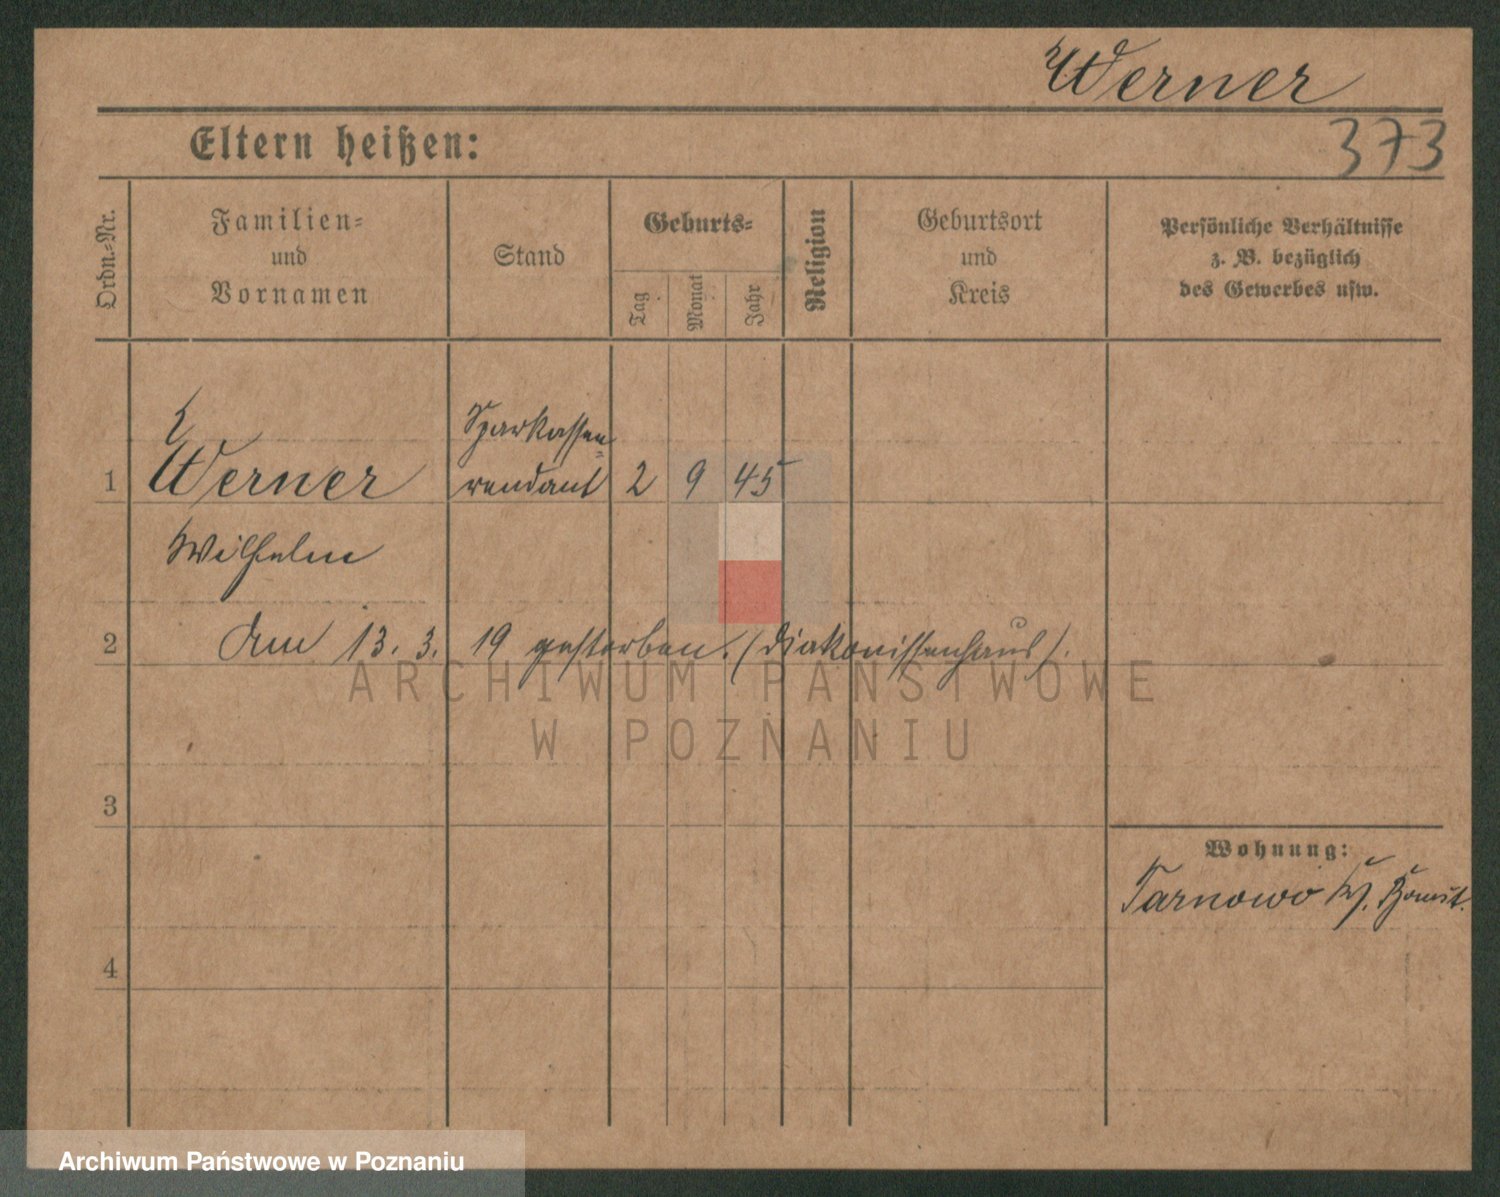 Werner
Eltern heißen:
373
Ordn.-Nr.
Familien-
und
Vornamen
Stand
Geburts-
Tag
Monat
Jahr
Religion
Geburtsort
und
Kreis
Persönliche Verhältnisse
z. B. bezüglich
des Gewerbes usw.
Sparkassen-
1 Werner rendant 2 9 45
Wilhelm
2 Am 13. 3. 19 gestorben. (Diakonissenhaus).
ARCHIWUM PAŃSTWOWE
W POZNANIU
3
Wohnung:
Tarnowo Kr. Bomst.
4
Archiwum Państwowe w Poznaniu